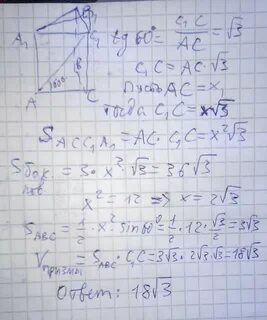 A₁ B₁ C₁
A 60° B C
tg 60° = C₁C / AC = √3
C₁C = AC · √3
Пусть AC = x,
Тогда C₁C = x√3
S ACC₁A₁ = AC · C₁C = x²√3
S бок пов = 3 · x² · √3 = 36√3
x² = 12 => x = 2√3
S ABC = 1/2 · x² · sin 60° = 1/2 · 12 · √3/2 = 3√3
V призмы = S ABC · C₁C = 3√3 · 2√3 · √3 = 18√3
Ответ: 18√3